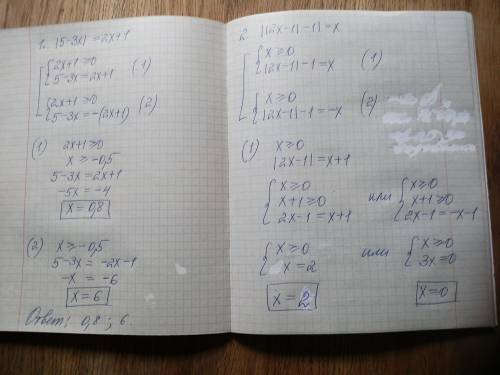 1. |5-3x| = 2x+1
2x+1 ≥ 0
5-3x = 2x+1 (1)
2x+1 ≥ 0
5-3x = -(2x+1) (2)
(1) 2x+1 ≥ 0
x ≥ -0,5
5-3x = 2x+1
-5x = -4
x = 0,8
(2) x ≥ -0,5
5-3x = -2x-1
-x = -6
x = 6
Ответ: 0,8 ; 6
2. ||2x-1|-1| = x
x ≥ 0
|2x-1|-1 = x (1)
x ≥ 0
|2x-1|-1 = -x (2)
(1) x ≥ 0
|2x-1| = x+1
x ≥ 0
x+1 ≥ 0
2x-1 = x+1
или
x ≥ 0
x+1 ≥ 0
2x-1 = -x-1
x ≥ 0
x = 2
или
x ≥ 0
3x = 0
x = 2
x = 0